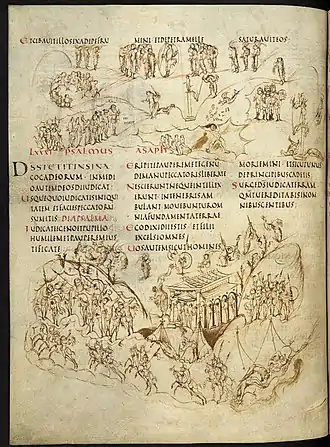 ETCIBAVITILLOSEXADIPEFRU MENTIETDEPETRAMELLE SATURAVITEOS
LXXXI PSALMUS ASAPH
DSSTETITINSINA
GOGADEORUM INMEDI
OAUTEMDEOSDIIUDICAT
USQUEQUOIUDICATISINIQUI
TATEM ETFACIESPECCATOR
SUMITIS DIAPSALMA
IUDICATEEGENOETPUPILLO
HUMILEMETPAUPEREMIUS
TIFICATE
ERIPITEPAUPEREMETEGENU
DEMANUPECCATORISLIBERATE
NESCIERUNTNEQUEINTELLEX
ERUNT INTENEBRISAM
BULANT MOVEBUNTUROM
NIAFUNDAMENTATERRAE
EGODIXIDIIESTIS ETFILII
EXCELSIOMNES
UOSAUTEMSICUTHOMINES
MORIEMINI ETSICUTUNUS
DEPRINCIPIBUSCADETIS
SURGEDSIUDICATERRAM
QMTUHEREDITABISINOM
NIBUSGENTIBUS